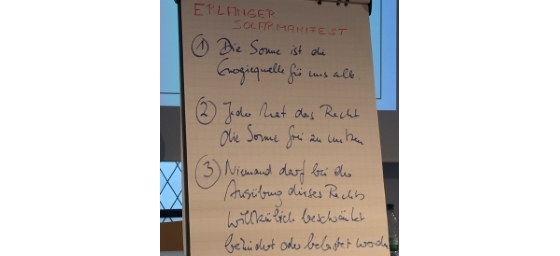 ERLANGER
SOLARMANIFEST
① Die Sonne ist die
Energiequelle für uns alle.
② Jeder hat das Recht
die Sonne frei zu nutzen
③ Niemand darf bei der
Ausübung dieses Rechts
willkürlich beschränkt
behindert oder belastet werden